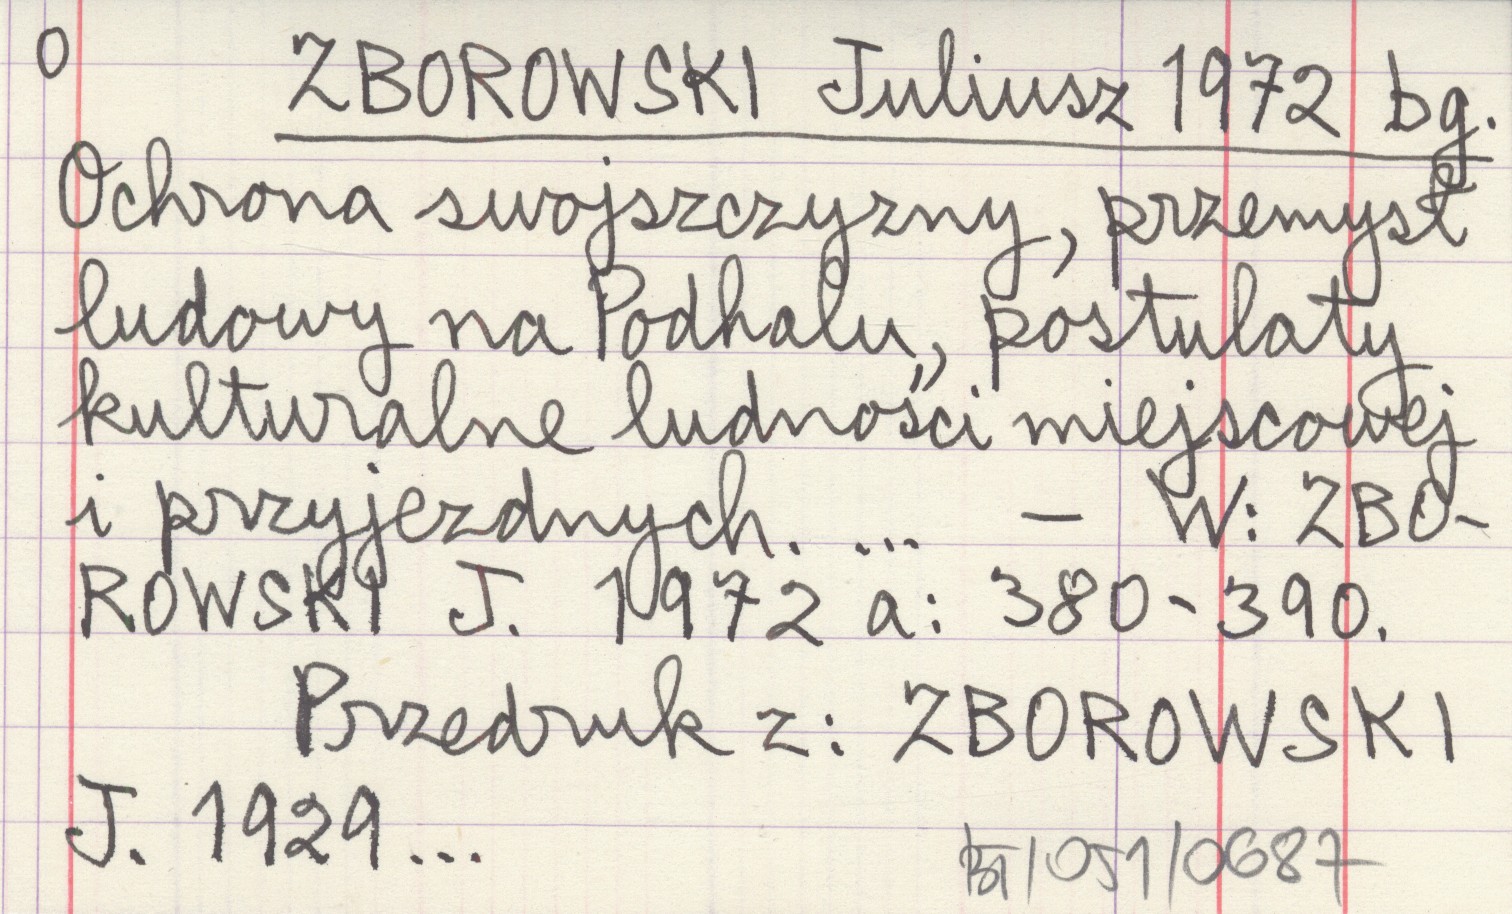 O ZBOROWSKI Juliusz 1972 bg.
Ochrona swojszczyzny, przemysł
ludowy na Podhalu, postulaty
kulturalne ludności miejscowej
i przyjezdnych. ... – W: ZBO-
ROWSKI J. 1972 a: 380-390.
Przedruk z: ZBOROWSKI
J. 1929...
/051/0687